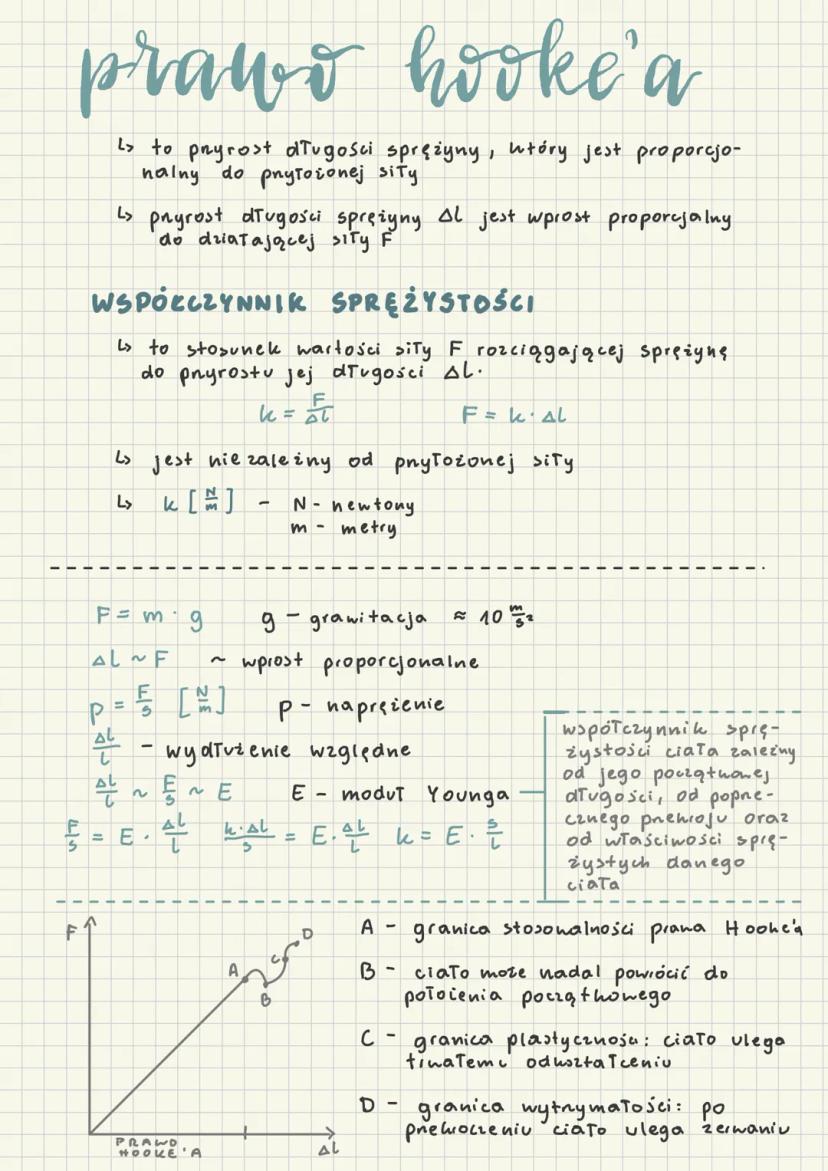 prawo hooke'a
↳ to przyrost długości sprężyny, który jest proporcjo-
nalny do przyłożonej siły
↳ przyrost długości sprężyny Δl jest wprost proporcjalny
do działającej siły F
WSPÓŁCZYNNIK SPRĘŻYSTOŚCI
↳ to stosunek wartości siły F rozciągającej sprężynę
do przyrostu jej długości Δl.
k = F/Δl F = k · Δl
↳ jest niezależny od przyłożonej siły
↳ k [N/m] - N - newtony
m - metry
F = m · g g - grawitacja ≈ 10 m/s²
Δl ~ F ~ wprost proporcjonalne
p = F/s [N/m] p - naprężenie
Δl/l - wydłużenie względne
Δl/l ~ F/s ~ E E - moduł Younga
F/s = E · Δl/l k·Δl/s = E · Δl/l k = E · s/l
współczynnik sprę-
żystości ciała zależny
od jego początkowej
długości, od poprze-
cznego przekroju oraz
od właściwości sprę-
żystych danego
ciała
F
A B C D
PRAWO
HOOKE'A
Δl
A - granica stosowalności prawa Hooke'a
B - ciało może nadal powrócić do
położenia początkowego
C - granica plastyczności: ciało ulega
trwałemu odkształceniu
D - granica wytrzymałości: po
przekroczeniu ciało ulega zerwaniu